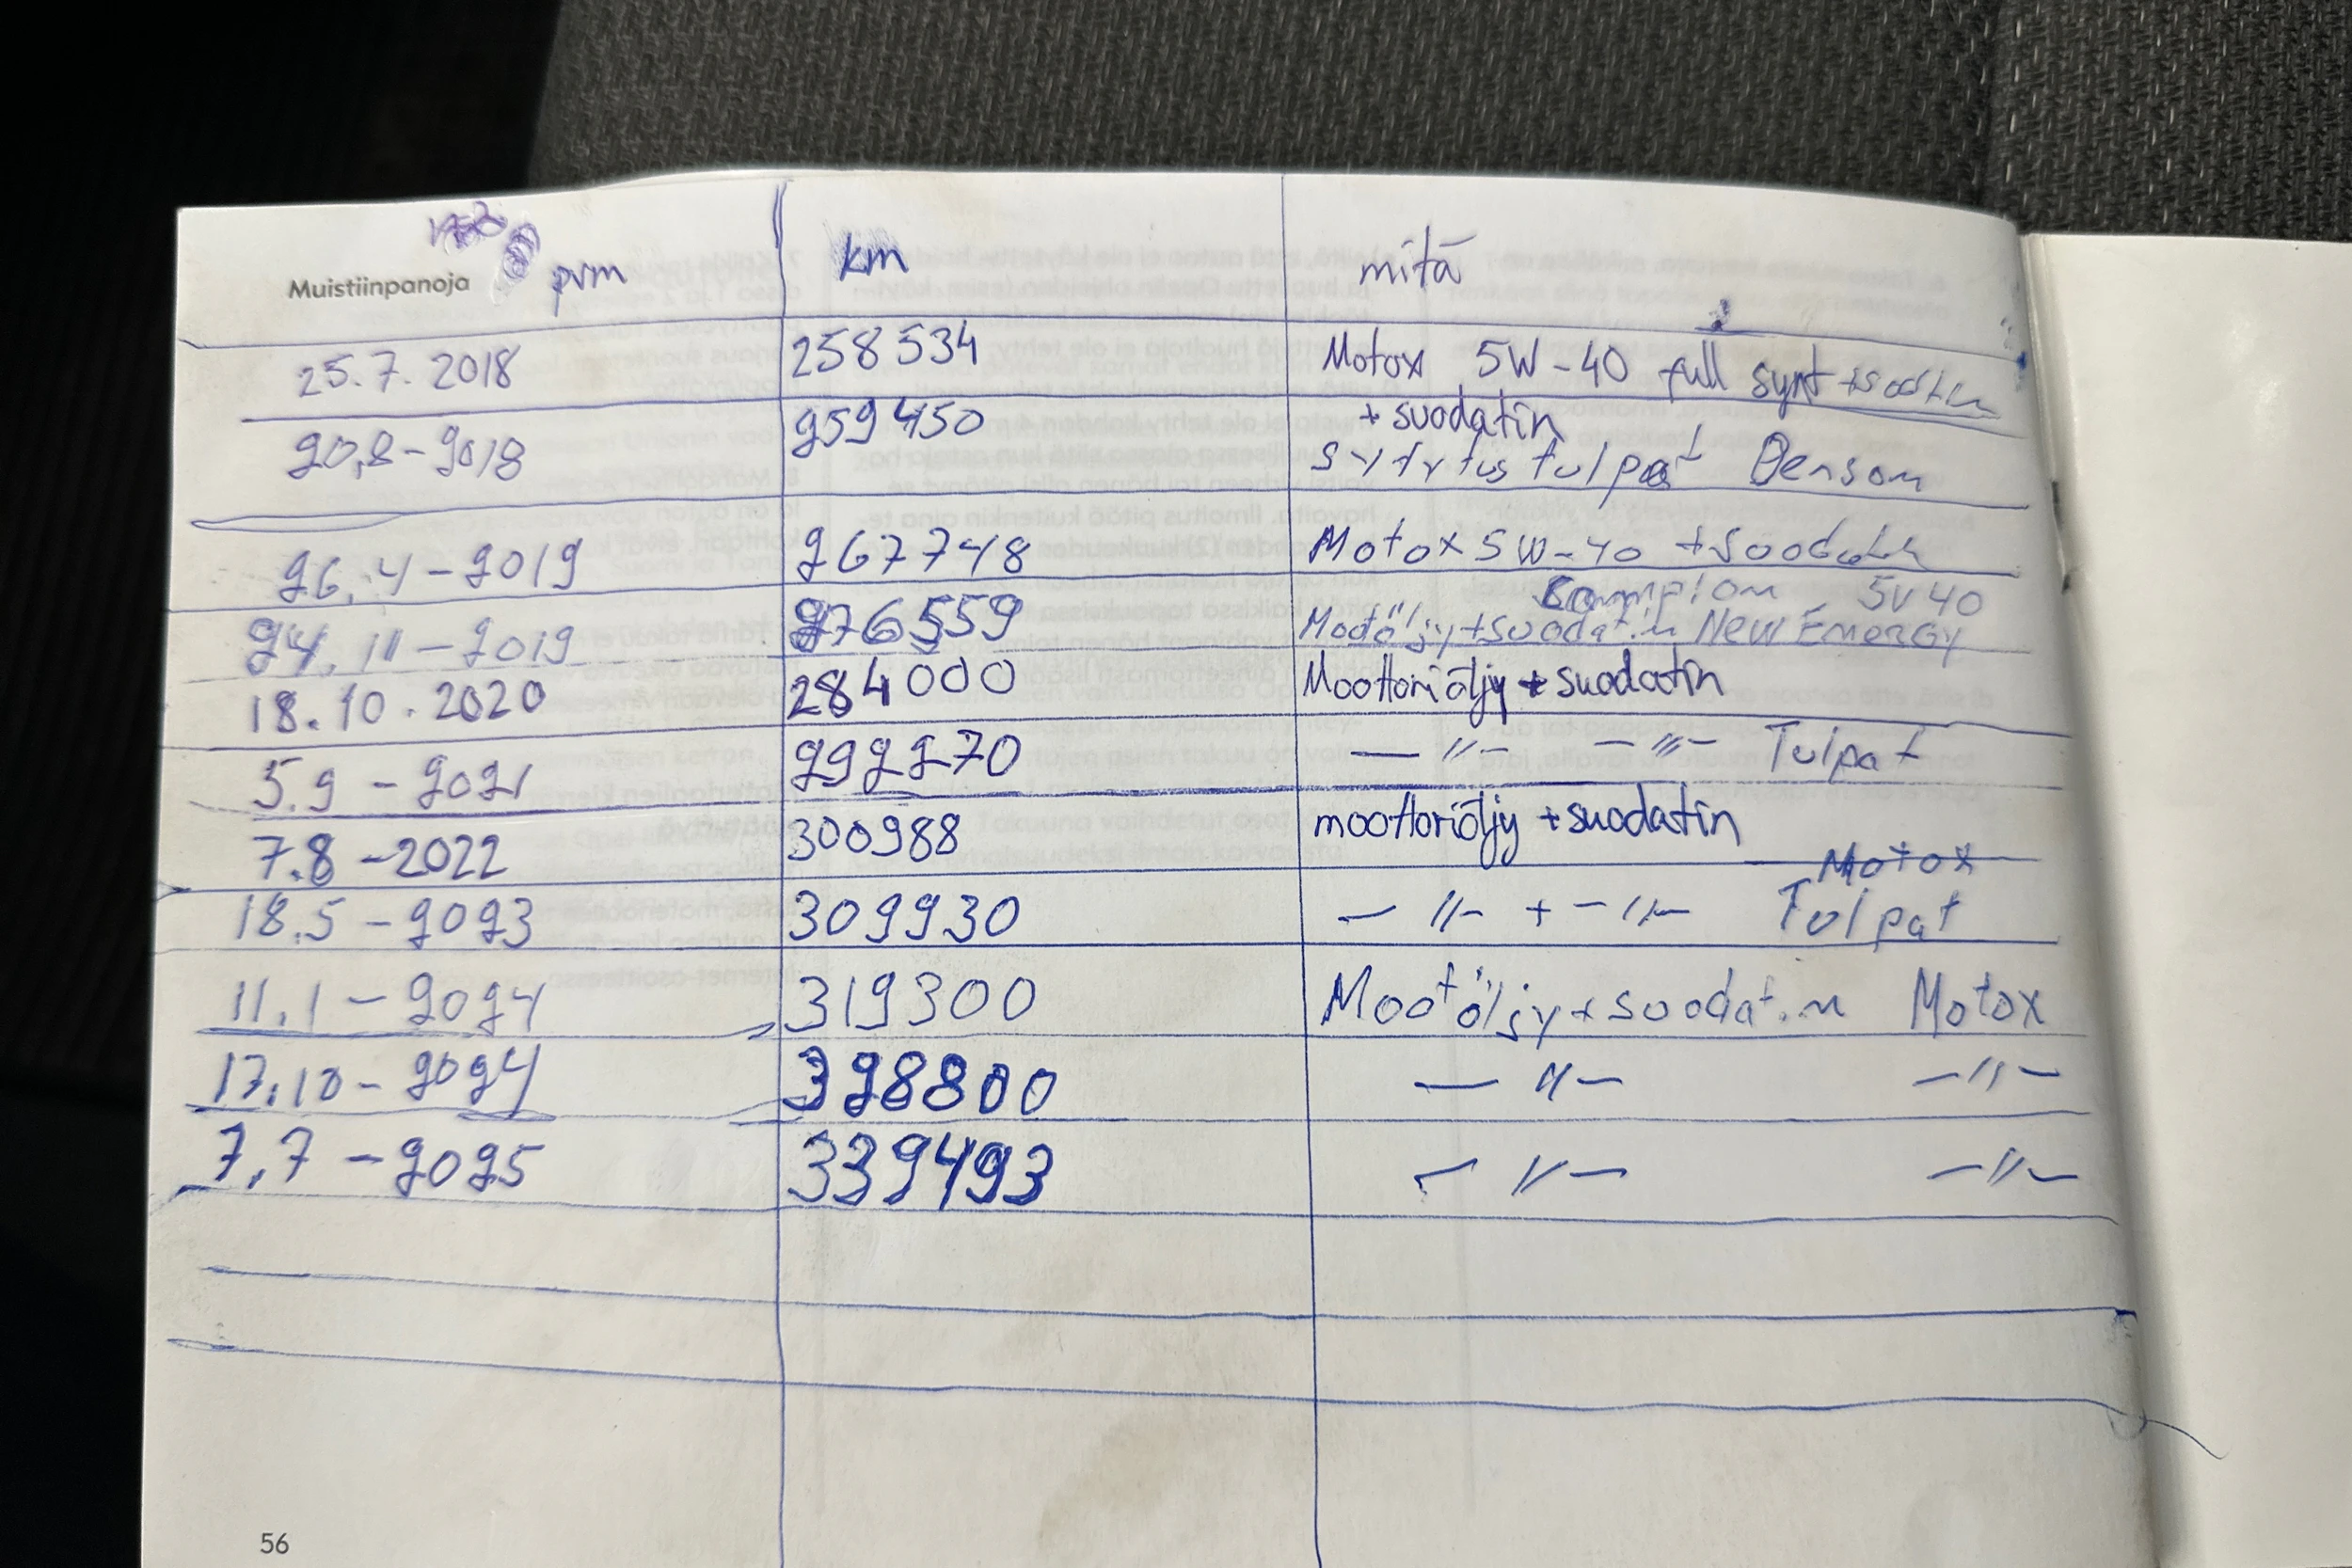 Muistiinpanoja pvm km mitä
25.7.2018 258534 Motox 5W-40 full synt +suodatin
+ suodatin
20.8-2018 259450 Sytytustulpat Denson
26.4-2019 267748 Motox 5W-40 +suodatin
Campion 5V40
24.11-2019 276559 Mootöljy+suodatin New Energy
18.10.2020 284000 Moottoriöljy + suodatin
5.9-2021 292270 —〃— —〃— Tulpat
7.8-2022 300988 moottoriöljy +suodatin
Motox
18.5-2023 309930 —〃— + —〃— Tulpat
11.1-2024 319300 Mootöljy+suodatin Motox
17.10-2024 328800 —〃— —〃—
7.7-2025 339493 —〃— —〃—
56